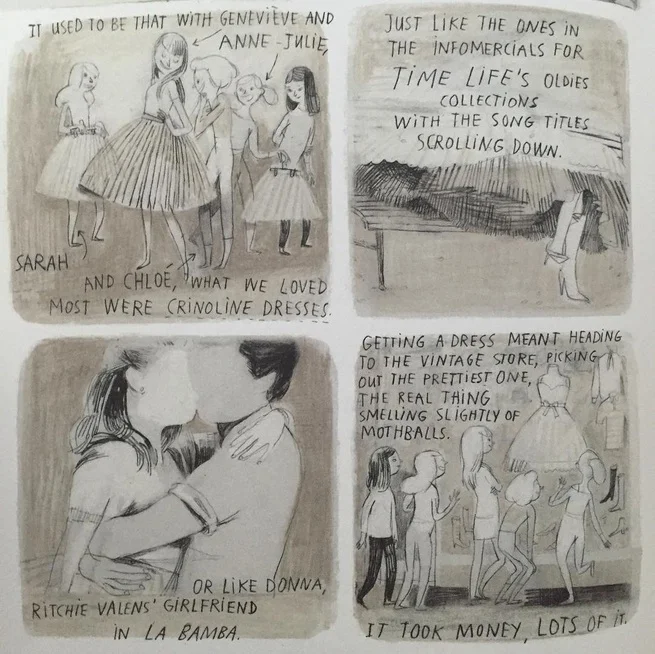 IT USED TO BE THAT WITH GENEVIÈVE AND
ANNE-JULIE,
SARAH
AND CHLOÉ, WHAT WE LOVED
MOST WERE CRINOLINE DRESSES.
JUST LIKE THE ONES IN
THE INFOMERCIALS FOR
TIME LIFE'S OLDIES
COLLECTIONS
WITH THE SONG TITLES
SCROLLING DOWN.
OR LIKE DONNA,
RITCHIE VALENS' GIRLFRIEND
IN LA BAMBA.
GETTING A DRESS MEANT HEADING
TO THE VINTAGE STORE, PICKING
OUT THE PRETTIEST ONE,
THE REAL THING
SMELLING SLIGHTLY OF
MOTHBALLS.
IT TOOK MONEY, LOTS OF IT.